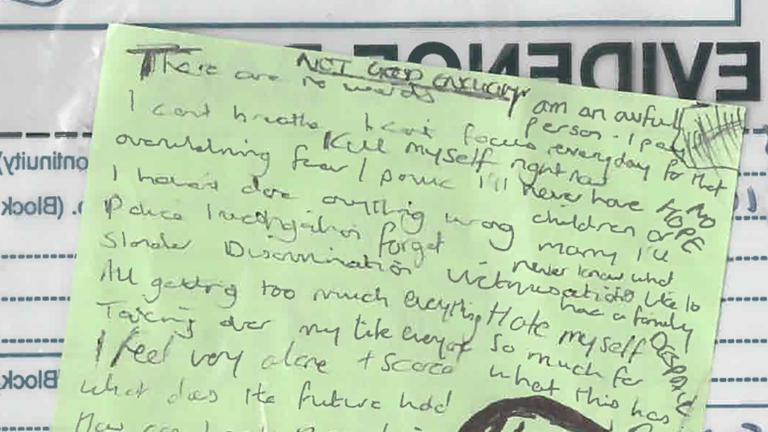 EVIDENCE
There are no words
NOT GOOD ENOUGH
I am an awful person - I pay everyday for that
I can't breathe I can't focus
Kill myself right now
overwhelming fear / panic
I'll never have children or marry I'll never know what it's like to have a family
NO HOPE
I haven't done anything wrong
Police Investigation forget
Slander Discrimination Victimisation
All getting too much everything
Hate myself so much for what this has
DESPAIR
Taking over my life everyday
I feel very alone + scared
What does the future hold
How can I
Continuity)
(Block
Block